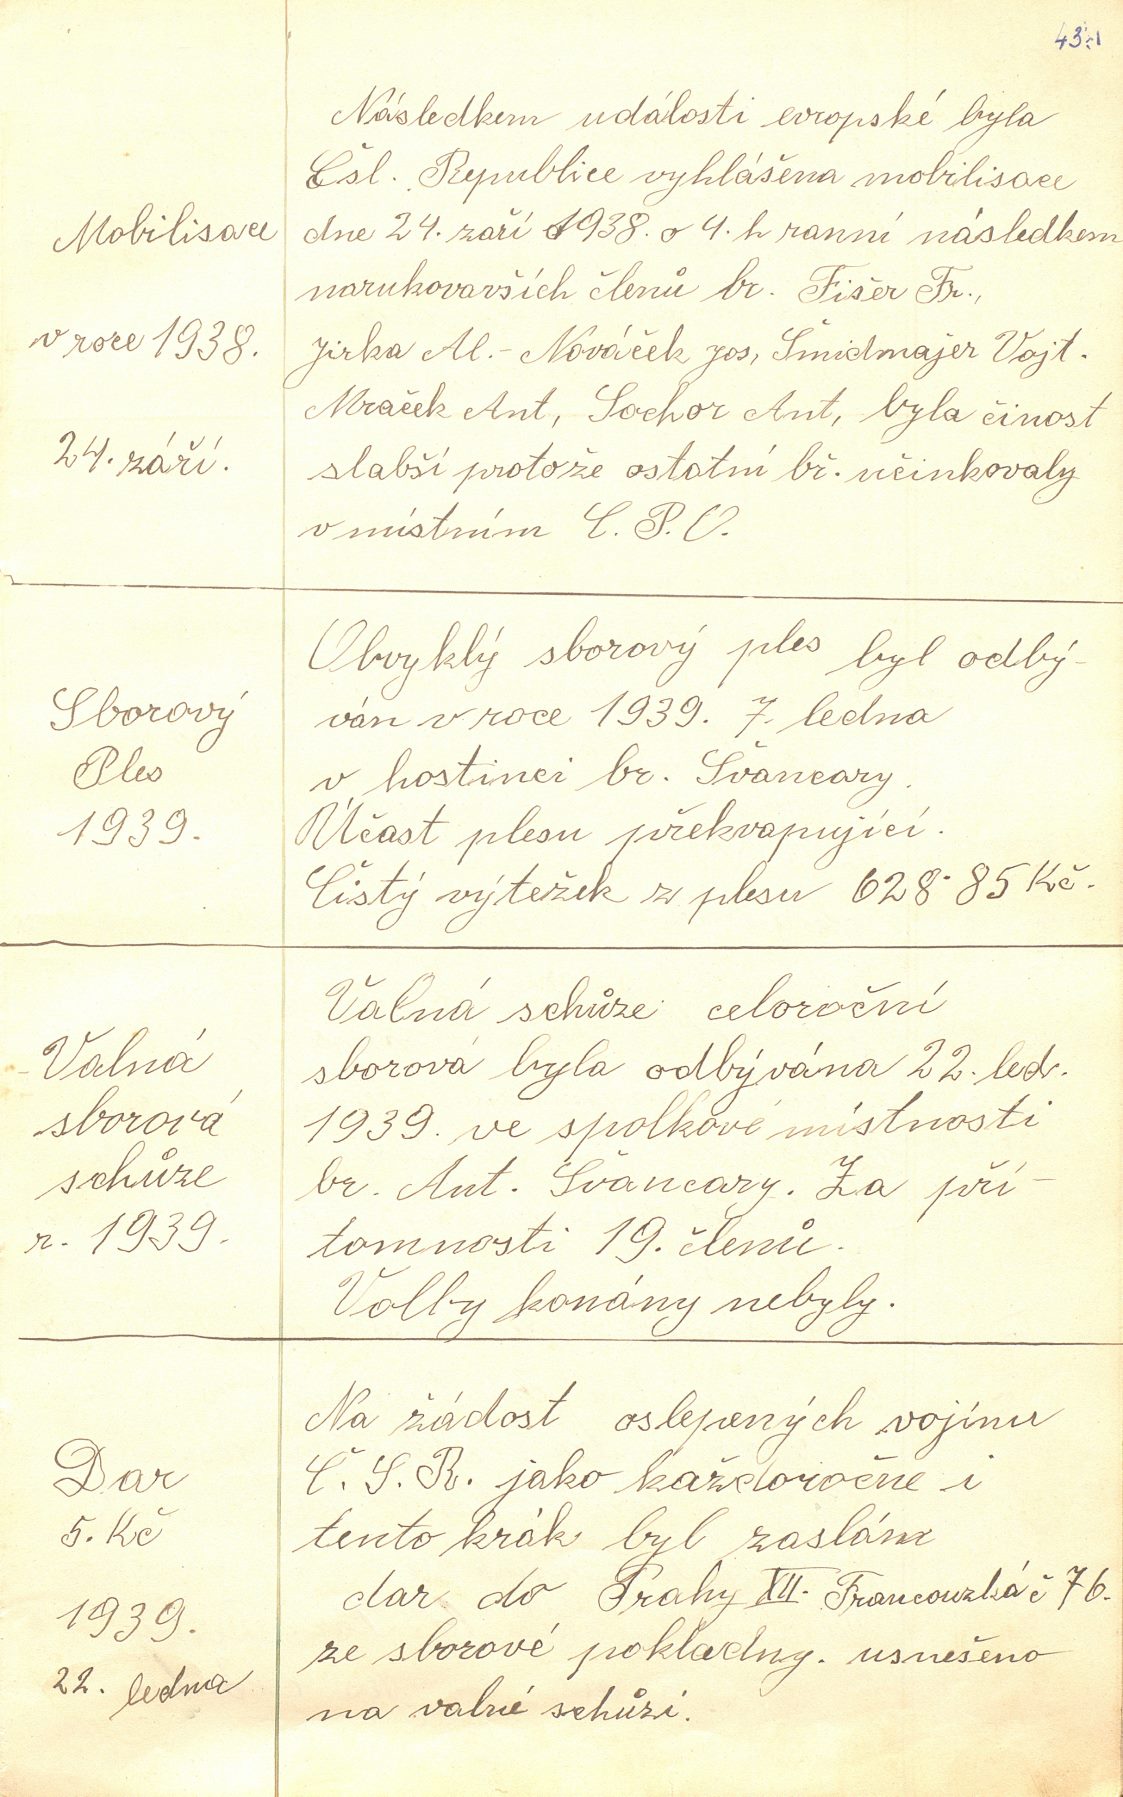 43
Následkem události evropské byla
Čsl. Republice vyhlášena mobilisace
Mobilisace
dne 24. září 1938. o 4. h ranní následkem
narukovavších členů br. Fišer Fr.,
v roce 1938.
Jirka Al. - Nováček Jos, Šmidmajer Vojt.
Mraček Ant, Sochor Ant, byla činost
24. září.
slabší protože ostatní bř. učinkovaly
v místním C. P. O.
Obvyklý sborový ples byl odbý-
Sborový
ván v roce 1939. 7. ledna
Ples
v hostinci br. Švancary.
1939.
Účast plesu překvapující.
Čistý výtežek z plesu 628·85 Kč.
Valná schůze celoroční
Valná
sborová byla odbývána 22. led.
sborová
1939. ve spolkové místnosti
schůze
br. Ant. Švancary. Za pří-
r. 1939.
tomnosti 19. členů.
Volby konány nebyly.
Na žádost oslepených vojínu
Dar
Č. S. R. jako každoročne i
5. Kč
tento krák byl zaslán
1939.
dar do Prahy XII. Francouzká č 76.
ze sborové pokladny. usnešeno
22. ledna
na valné schůzi.